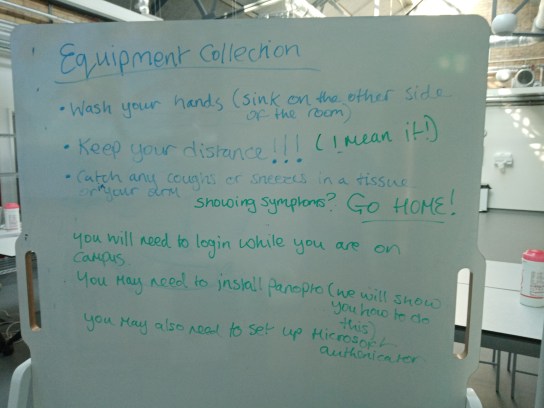 Equipment Collection
• Wash your hands (sink on the other side
of the room)
• Keep your distance!!! (I mean it!)
• Catch any coughs or sneezes in a tissue
or in your arm
showing symptoms? GO HOME!
you will need to login while you are on
campus
you may need to install panopto (we will show
you how to do
this)
you may also need to set up Microsoft
authenticator